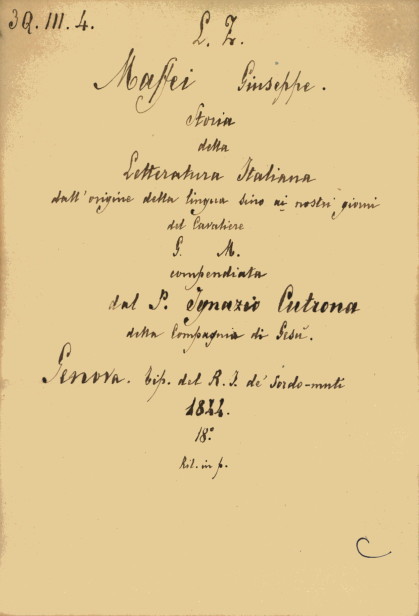 3Q. III. 4.
L. Z.
Maffei Giuseppe.
Storia
della
Letteratura Italiana
dall'origine della lingua sino ai nostri giorni
del Cavaliere
G. M.
compendiata
dal P. Ignazio Cutrona
della Compagnia di Gesù.
Genova. tip. del R. I. de' Sordo-muti
18°
Ril. in p.
C